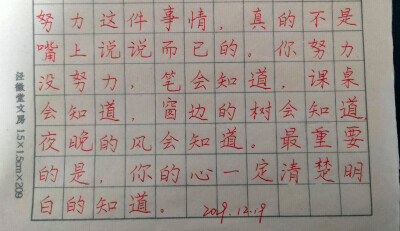 努力这件事情，真的不是
嘴上说说而已的。你努力
没努力，笔会知道，课桌
会知道，窗边的树会知道，
夜晚的风会知道。最重要
的是，你的心一定清楚明
白的知道。 2019.12.19
泾徽堂文房 15×15cm×209